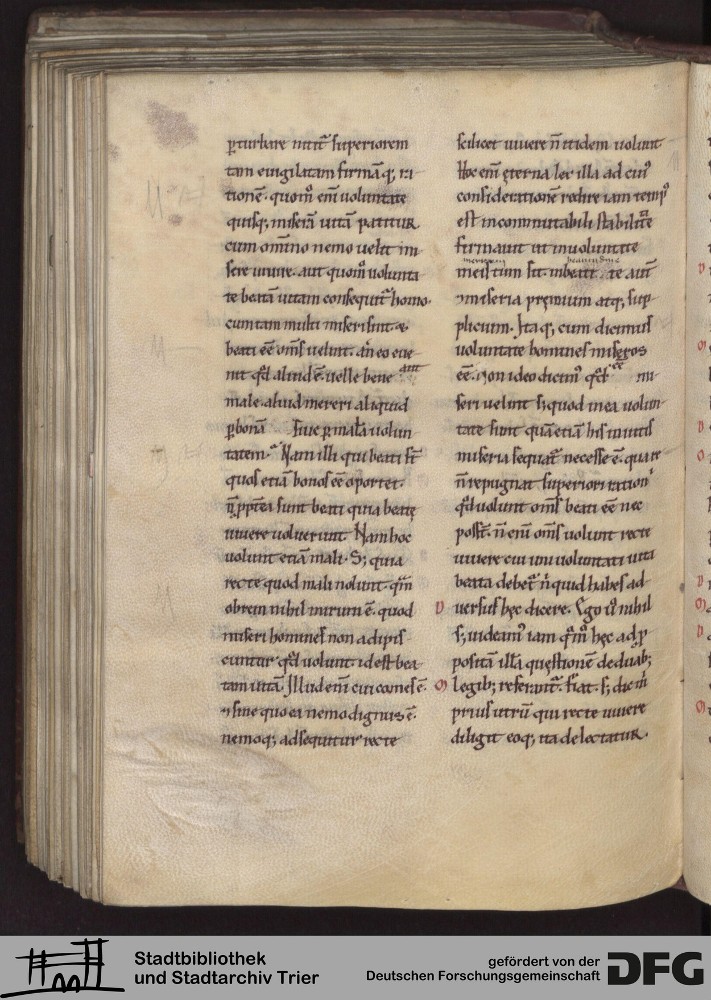 ꝑturbare nitit̄ superiorem
tam euigilatam firmāq; ra
tionē. quom̊ eni͂ uoluntate
quisq; miserā uitā patitur
cum om̄ino nemo uelit mi
sere uiuere. aut quom̊ uolunta
te beatā uitam consequit̄ homo.
cum tam multi miseri sint &
beati ēē om̄s uelint. an eo eue
nit qđ aliud ē. uelle bene aut
male. aliud mereri aliquid
ꝑ bonā siue ꝑ malā uolun
tatem. Nam illi qui beati s̄t
quos etiā bonos ēē oportet.
n̄ ꝓpt̄ea sunt beati quia beate
uiuere uoluerunt. Nam hoc
uolunt etiā mali. S; quia
recte quod mali nolunt. qm̄
obrem nihil mirum ē. quod
miseri homines non adipis
cuntur qđ uolunt. id est bea
tam uitā. Illud eni͂ cui comes ē.
& sine quo ea nemo dignus ē.
nemoq; adsequitur recte
scilicet uiuere n̄ itidem uolunt
Hoc eni͂ ęterna lex illa ad cui᾽
considerationē redire iam temp᾽
est incommutabili stabilitate
firmauit ut in uoluntate
meritum sit in beatitate aut̄
& miseria pręmium atq; sup
plicium. Itaq; cum dicimus
uoluntate homines miseros
ēē. non ideo dicim᾽ qđ ēē mi
seri uelint s; quod in ea volun
tate sunt quā etiā his inuitis
miseria sequat̄ necesse ē. quare
n̄ repugnat superiori ration̄
qđ uolunt om̄s beati ēē nec
posst̄. n̄ eni͂ om̄s uolunt recte
uiuere cui uni uoluntati uita
beata debet̄ n̄ quid habes ad
uersus hęc dicere. Ego ů nihil
s; uideam᾽ iam qm̄ hęc ad ꝓ
positā illā quęstionē de duab;
legib; referant̄. Fiat. s; dic m̄
prius utrū qui recte uiuere
diligit eoq; ita delectatur.
Stadtbibliothek
und Stadtarchiv Trier
gefördert von der
Deutschen Forschungsgemeinschaft
DFG